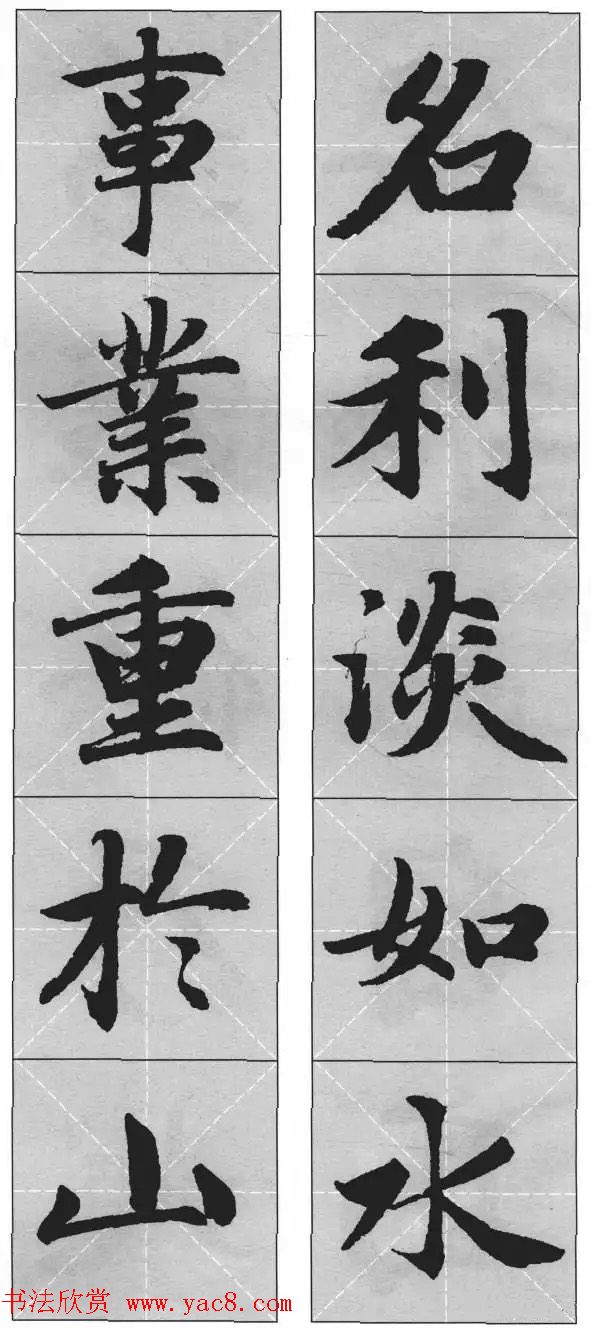 名利淡如水
事業重於山
书法欣赏 www.yac8.com